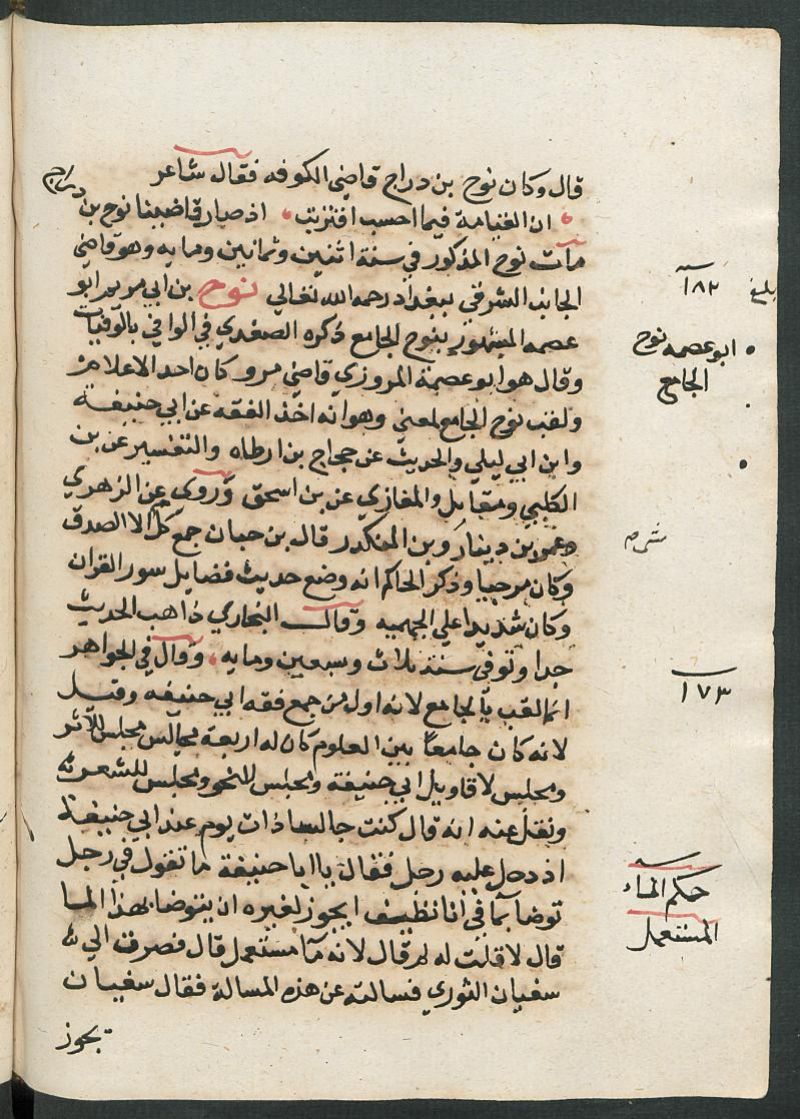 قال وكان نوح بن دراج قاضي الكوفه فقال شاعر
ان القيامة فيما احسب اقتربت اذ صار قاضينا نوح بن دراج
مات نوح المذكور في سنة اثنين وثمانين ومايه وهو قاضي
الجانب الشرقي ببغداد رحمه الله تعالي نوح بن ابي مريم ابو
عصمه المشهور بنوح الجامع ذكره الصفدي في الوافي بالوفيات
وقال هو ابو عصمة المروزي قاضي مرو كان احد الاعلام
ولقب نوح الجامع لمعني وهو انه اخذ الفقه عن ابي حنيفه
وابن ابي ليلي والحديث عن حجاج بن ارطاه والتفسير عن بن
الكلبي ومقاتل والمغازي عن بن اسحق وروي عن الزهري
وعمرو بن دينار وبن المنكدر قال بن حبان جمع كل الا الصدق
وكان مرجيا وذكر الحاكم انه وضع حديث فضايل سور القران
وكان شديدا علي الجهميه وقال البخاري ذاهب الحديث
جدا وتوفي سنة ثلاث وسبعين ومايه وقال في الجواهر
انما لقب بالجامع لانه اول من جمع فقه ابي حنيفه وقيل
لانه كان جامعا بين العلوم كان له اربعة مجالس مجلس للاثر
ومجلس لاقاويل ابي حنيفة ومجلس للنحو ومجلس للشعر
ونقل عنه انه قال كنت جالسا ذات يوم عند ابي حنيفة
اذ دخل عليه رجل فقال يا ابا حنيفة ما تقول في رجل
توضا بما في انا نظيف ايجوز لغيره ان يتوضا بهذا الما
قال لا قلت له لم قال لانه ما مستعمل قال فصرت الي
سفيان الثوري فسالته عن هذه المسالة فقال سفيان
يجوز
١٨٢
ابو عصمه نوح
الجامع
١٧٣
حكم الماء
المستعمل